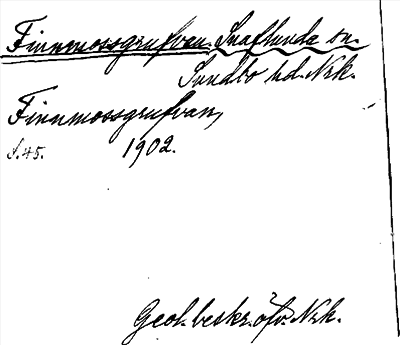 Finnmossgrufvan. Snaflunda sn.
Sundbo hd. Nrk.
Finnmossgrufvan,
S. 45. 1902.
Geol. beskr. öfv. Nrk.